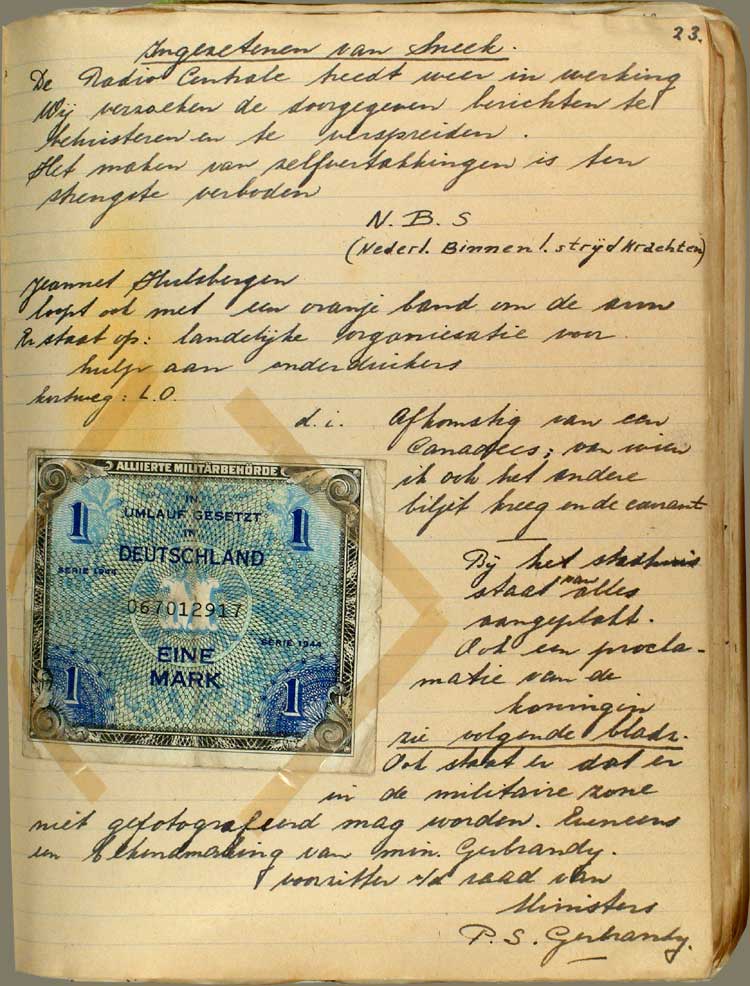 23.
Ingezetenen van Sneek.
De Radio Centrale treedt weer in werking
Wij verzoeken de doorgegeven berichten te
beluisteren en te verspreiden.
Het maken van zelfvertakkingen is ten
strengste verboden
N.B.S
(Nederl. Binnenl. strijdkrachten)
Jeannet Hulsbergen
loopt ook met een oranje band om de arm
Er staat op: landelijke organiesatie voor
hulp aan onderduikers
kortweg: L.O.
d.i. Afkomstig van een
Canadees; van wien
ik ook het andere
biljet kreeg en de courant
ALLIIERTE MILITÄRBEHÖRDE
IN
UMLAUF GESETZT
IN
DEUTSCHLAND
1 1
SERIE 1944
067012917
SERIE 1944
EINE
MARK
1 1
Bij het stadhuis
staat van alles
aangeplakt.
Ook een procla-
matie van de
koningin
zie volgende bladz.
Ook staat er dat er
in de militaire zone
niet gefotografeerd mag worden. Eveneens
een bekendmaking van min. Gerbrandy.
voorzitter v/d raad van
Ministers
P.S. Gerbrandy.